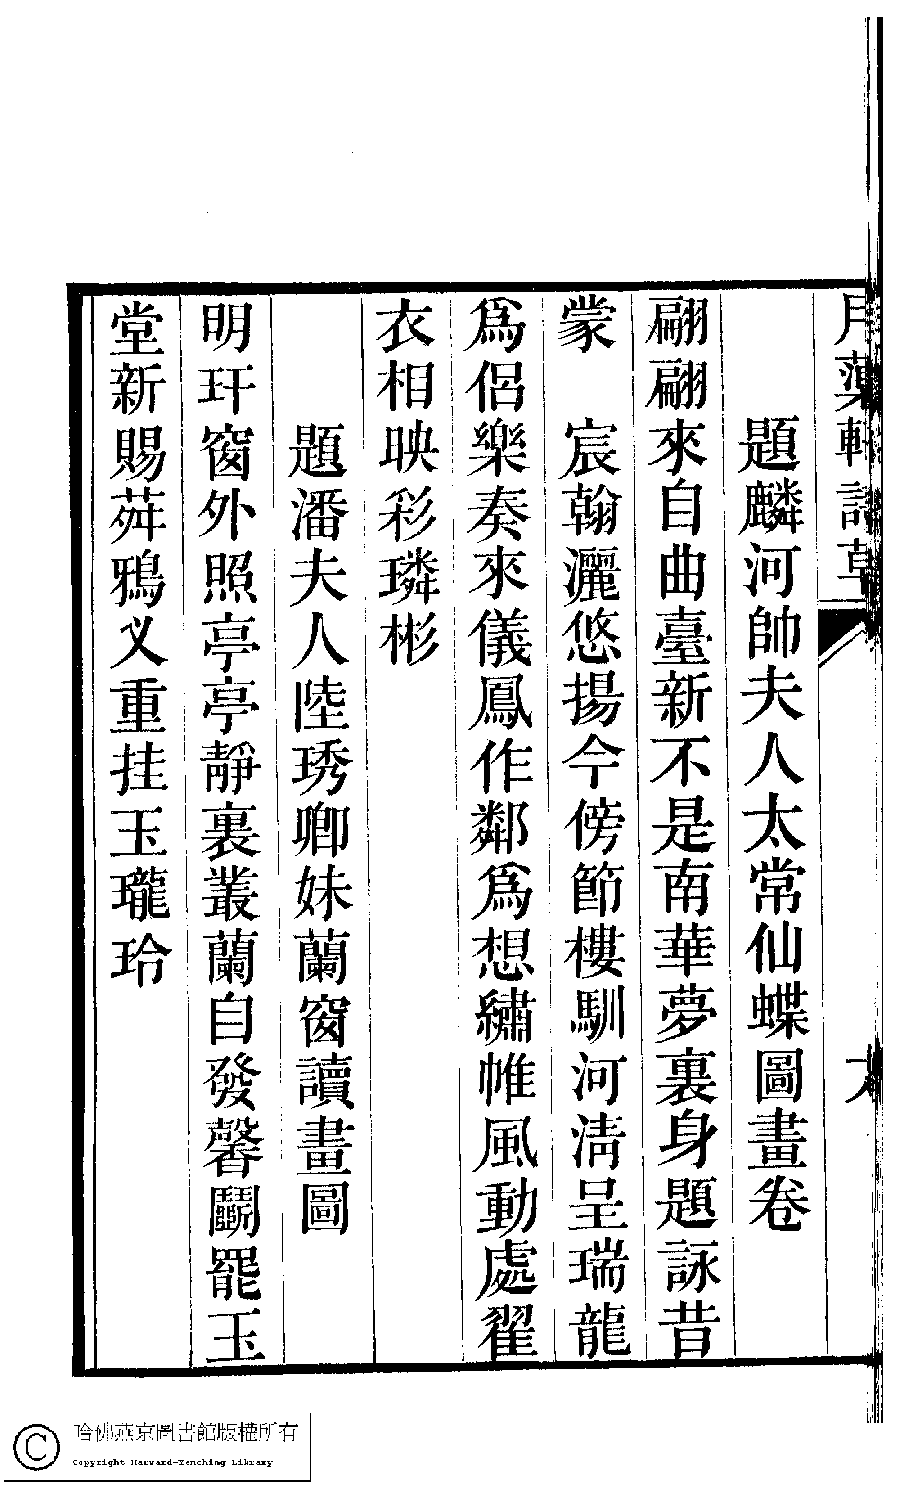 月蕖軒詩草
題麟河帥夫人太常仙蝶圖畫卷
翩翩來自曲臺新不是南華夢裏身題詠昔
蒙　宸翰灑悠揚今傍節樓馴河淸呈瑞龍
爲侶樂奏來儀鳳作鄰爲想繡帷風動處翟
衣相映彩璘彬
題潘夫人陸琇卿妹蘭窗讀畫圖
明玕窗外照亭亭靜裏叢蘭自發馨鬭罷玉
堂新賜茻鴉义重挂玉瓏玲
哈佛燕京圖書館版權所有
Copyright Harvard-Yenching Library